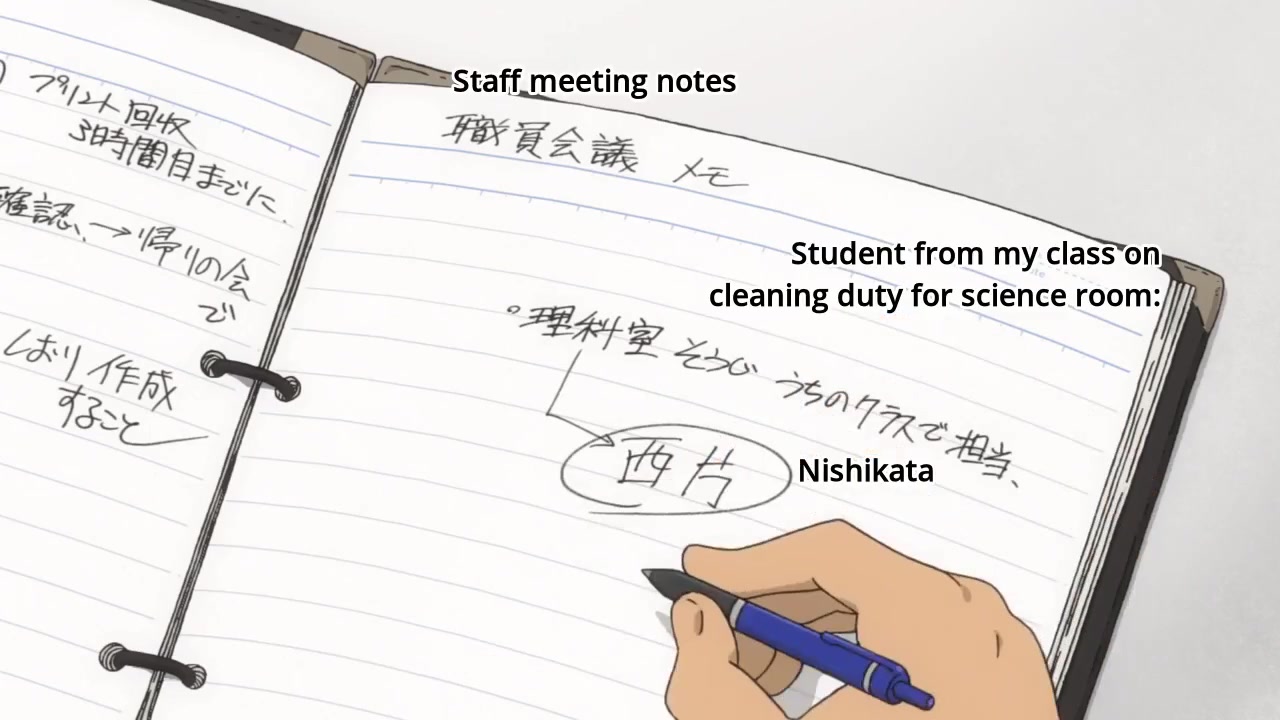 プリント回収
3時間目までに.
確認、→帰りの会
で
しおり作成
すること
Staff meeting notes
職員会議 メモ
Student from my class on
cleaning duty for science room:
。理科室 そうじ うちのクラスで担当、
西片
Nishikata